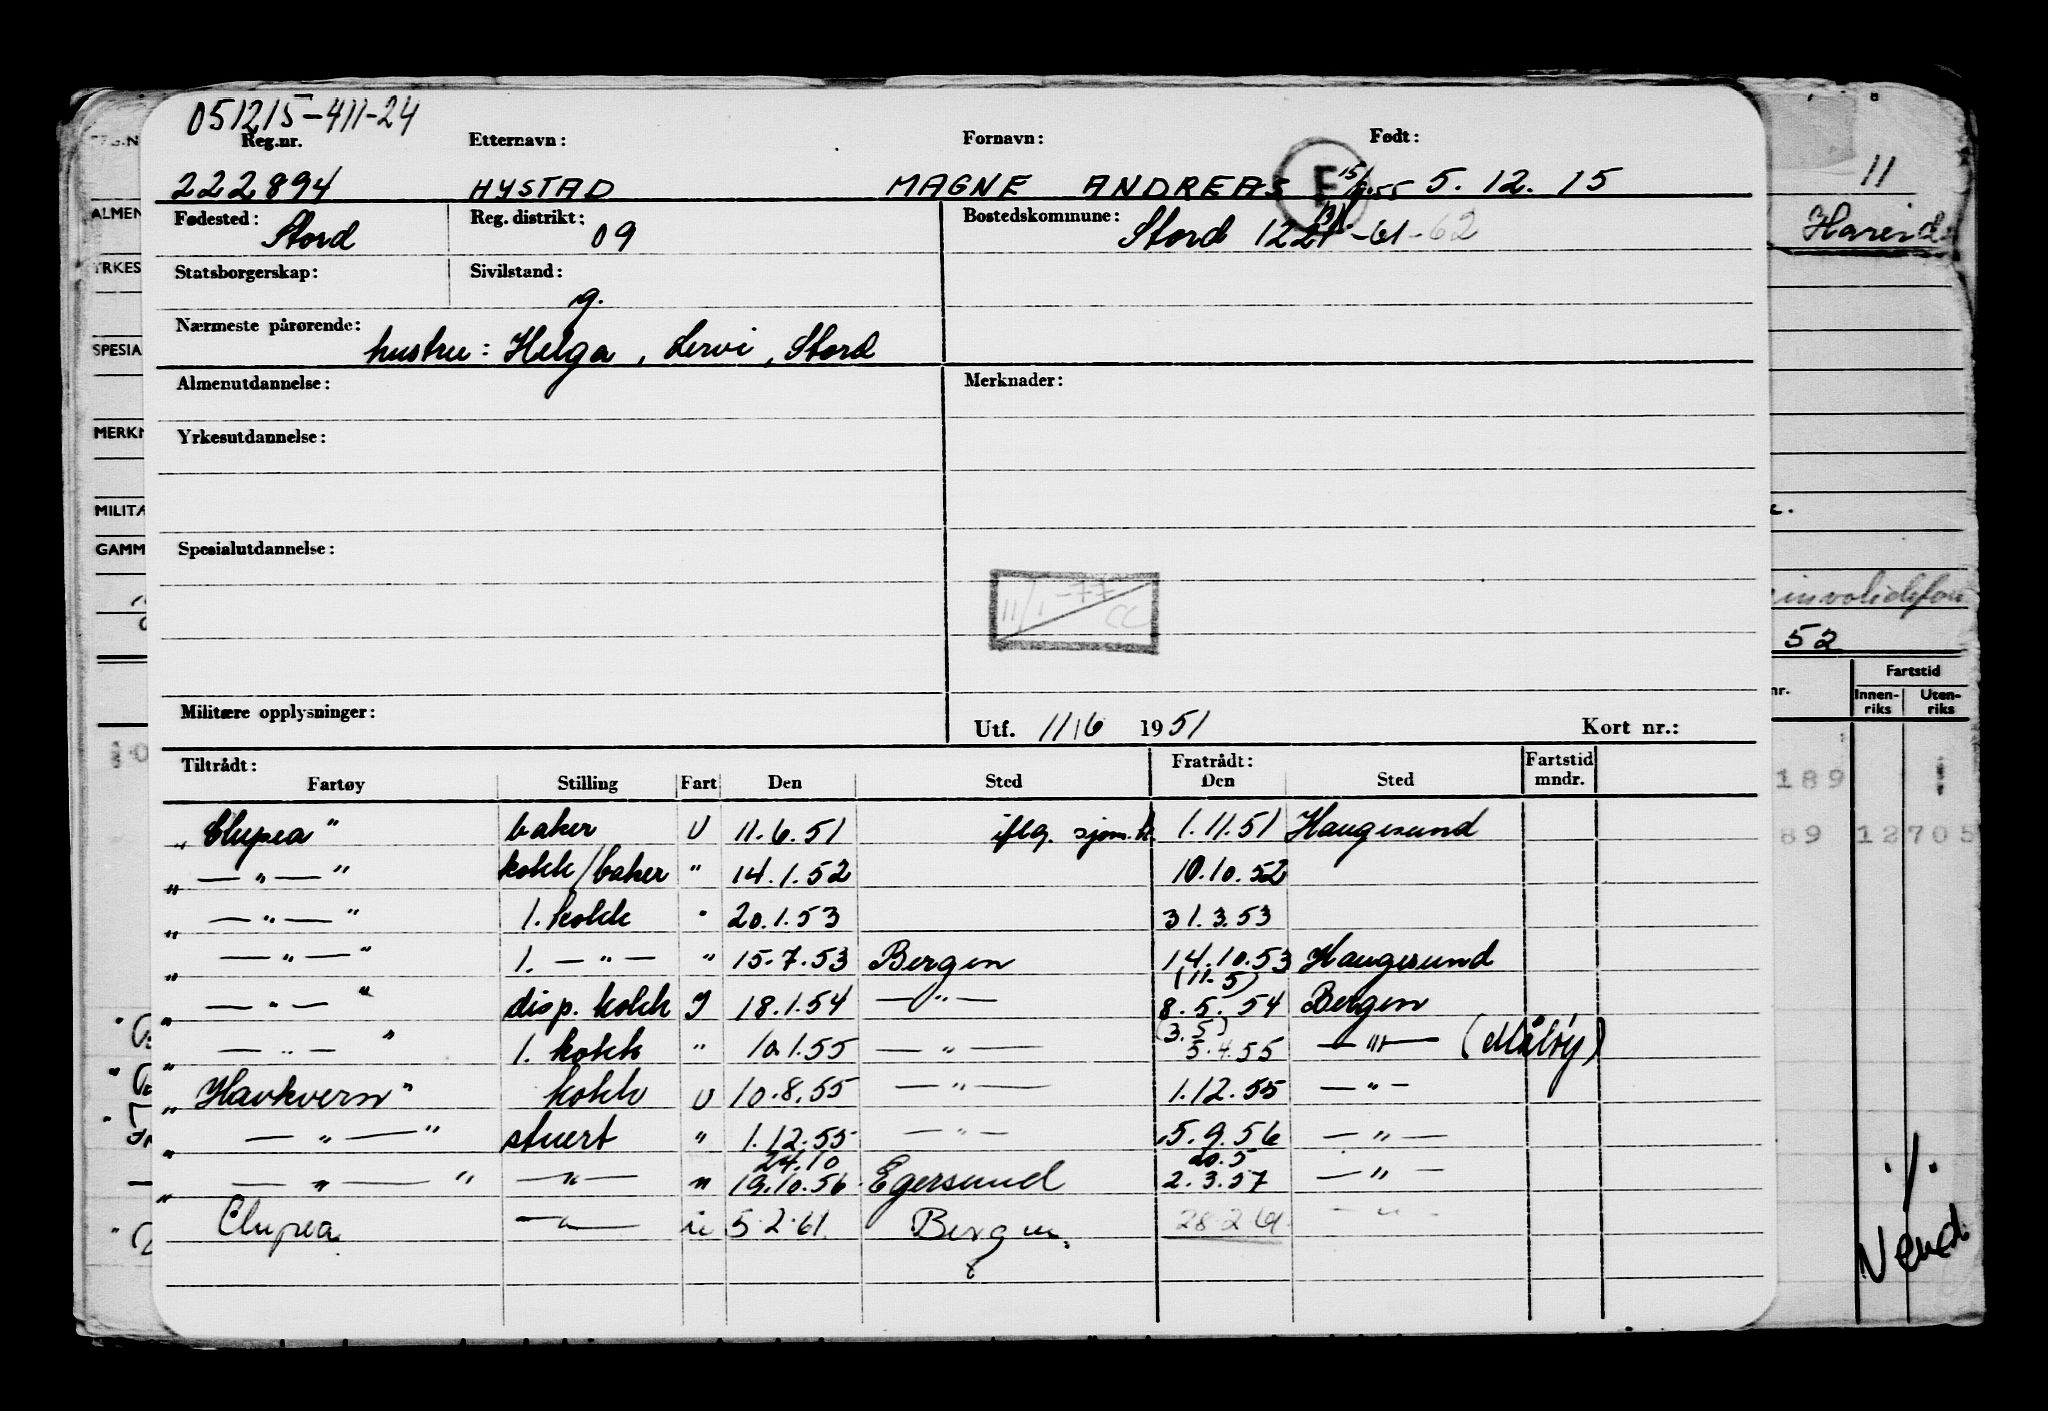 051215-411-24
Reg.nr. Etternavn: Fornavn: Født:
222894 HYSTAD MAGNE ANDREAS F 5.12.15
Fødested: Stord Reg. distrikt: 09 Bostedskommune: Stord 1221 -61-62
Statsborgerskap: Sivilstand: g.
Nærmeste pårørende: hustru: Helga, Lervi, Stord
Almenutdannelse: Merknader:
Yrkesutdannelse:
Spesialutdannelse:
11/1-77 CC
Militære opplysninger: Utf. 11/6 1951 Kort nr.:
Tiltrådt: Fratrådt: Fartstid
Fartøy Stilling Fart Den Sted Den Sted mndr.
„Clupea" baker U 11.6.51 iflg. sjøm. 1.11.51 Haugesund
„—"—" kokk/baker " 14.1.52 10.10.52
„—"—" 1. kokk " 20.1.53 31.3.53
„—"—" 1. —"— " 15.7.53 Bergen 14.10.53 Haugesund
(11.5)
„—"—" disp. kokk I 18.1.54 —"— 8.5.54 Bergen
(3.5)
„—"—" 1. kokk " 10.1.55 —"— 5.4.55 —"— (Måløy)
„Havkvern" kokk U 10.8.55 —"— 1.12.55 —"—
„—"—" stuert " 1.12.55 —"— 5.9.56 —"—
24.10 20.5
„—"—" —"— " 19.10.56 Egersund 2.3.57 —"—
Clupea —"— 5.2.61. Bergen. 28.2.61 —"—
REG.N
ALMEN
YRKES
SPESIA
MERKN
MILITÆ
GAMM
11
Hareid
52
nr. Fartstid
Innen-
riks
Uten-
riks
189
89 12705
./.
Vend